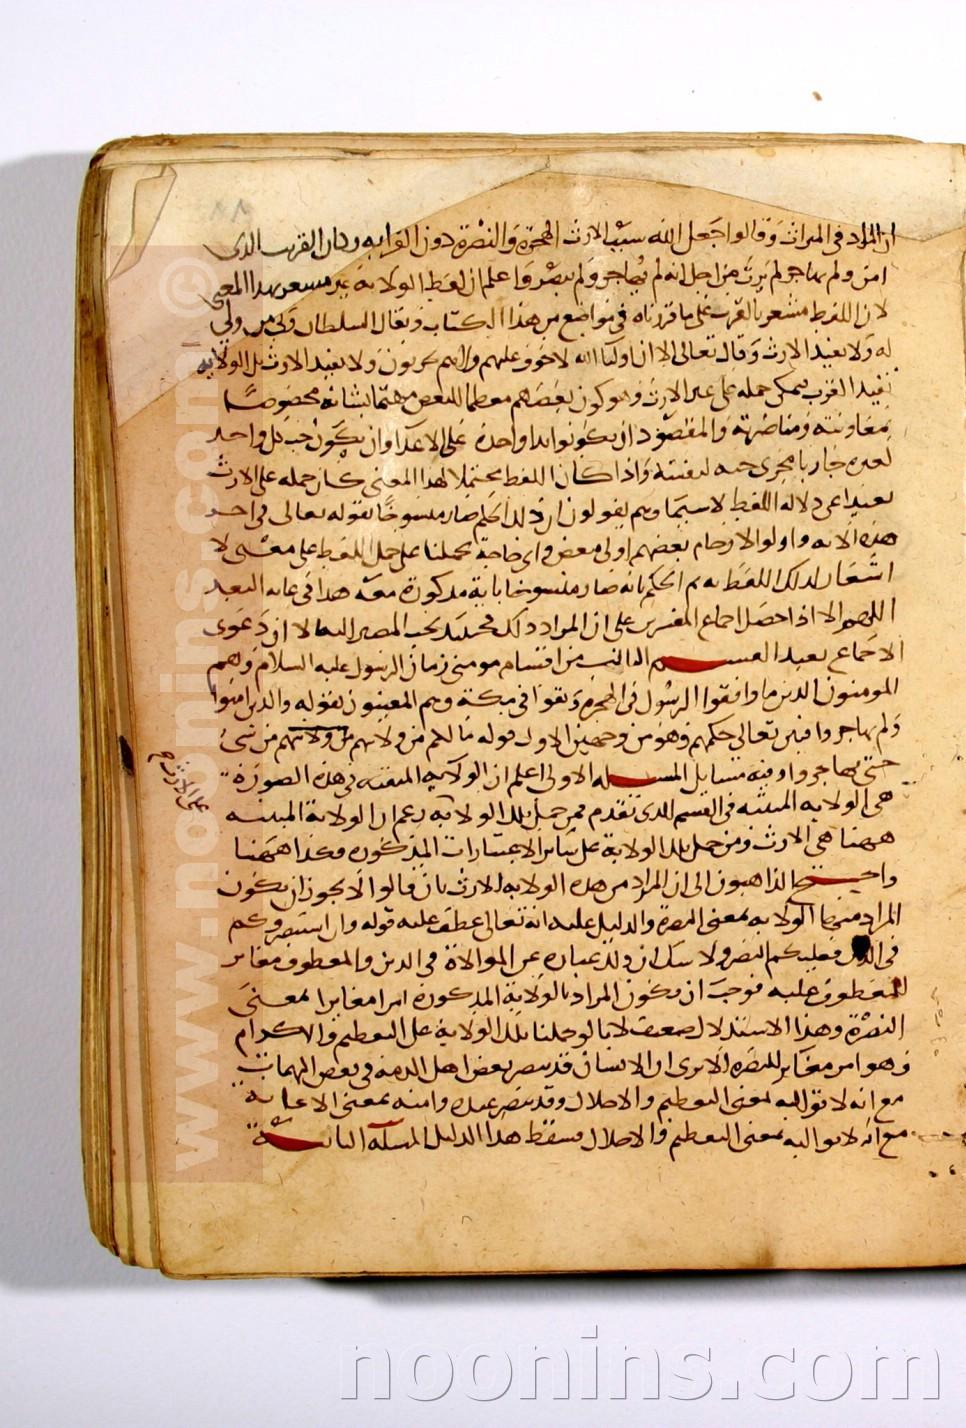 ان المراد في الميراث وقالوا جعل الله سبب الارث الهجرة والنصرة دون القرابه وكان القريب الذي
امن ولم يهاجر لم يرث من اجل انه لم يهاجر ولم ينصر واعلم ان لفظ الولاية غير مشعر بهذا المعنى
لان اللفظ مشعر بالقرب على ما قررناه في مواضع من هذا الكتاب ويقال السلطان ولي من لا ولي
له ولا يفيد الارث وقال تعالى الا ان اوليا الله لا خوف عليهم ولا هم يحزنون ولا يفيد الارث بل الولايه
تفيد القرب فيمكن حمله على غير الارث وهو كون بعضهم معظما للبعض مهتما بشانه مخصوصا
بمعاونته ومناصرته والمقصود ان يكونوا يدا واحدة على الاعداء وان يكون حب كل واحد
لغيره جاريا مجرى حبه لنفسه واذا كان اللفظ محتملا لهذا المعنى كان حمله على الارث
بعيدا عن دلالة اللفظ لا سيما وهم يقولون ان ذلك الحكم صار منسوخا بقوله تعالى في اخر
هذه الايه واولوا الارحام بعضهم اولى ببعض واي حاجة تحملنا على حمل اللفظ على معنى لا
اشعار لذلك اللفظ به ثم الحكم بانه صار منسوخا باية مذكورة معه هذا في غاية البعد
اللهم الا اذا حصل اجماع المفسرين على ان المراد ذلك فحينئذ يجب المصير اليه الا ان دعوى
الاجماع بعيد القسم الثالث من اقسام مومني زمان الرسول عليه السلام وهم
المومنون الذين ما وافقوا الرسول في الهجرة وبقوا في مكة وهم المعنيون بقوله والذين امنوا
ولم يهاجروا فبين تعالى حكمهم وهو من وجهين الاول قوله ما لكم من ولايتهم من شي
حتى يهاجروا وفيه مسايل المسله الاولى اعلم ان الولاية المنفيه في هذه الصورة
هي الولايه المثبته في القسم الذي تقدم فمن حمل تلك الولاية زعم ان الولاية المنفيه
ههنا هي الارث ومن حمل تلك الولاية على سائر الاعتبارات المذكوره فكذا ههنا
واحتج الذاهبون الى ان المراد من هذه الولايه الارث بان قالوا لا يجوز ان يكون
المراد منها الولايه بمعنى النصرة والدليل عليه انه تعالى عطف عليه قوله وان استنصروكم
في الدين فعليكم النصر ولا شك ان ذلك عبارة عن الموالاة في الدين والمعطوف مغاير
للمعطوف عليه فوجب ان يكون المراد بالولاية المذكورة امرا مغايرا لمعنى
النصرة وهذا الاستدلال ضعيف لانا لو حملنا تلك الولاية على التعظيم والاكرام
وهو امر مغاير للنصره الا ترى ان الانسان قد ينصر بعض اهل الذمة في بعض المهمات
مع انه لا يواليه بمعنى التعظيم والاجلال وقد ينصر عبده وامته بمعنى الاعانة
مع انه لا يواليه بمعنى التعظيم والاجلال فسقط هذا الدليل المسلة الثانية
على الارث
www.noonins.com ©
noonins.com